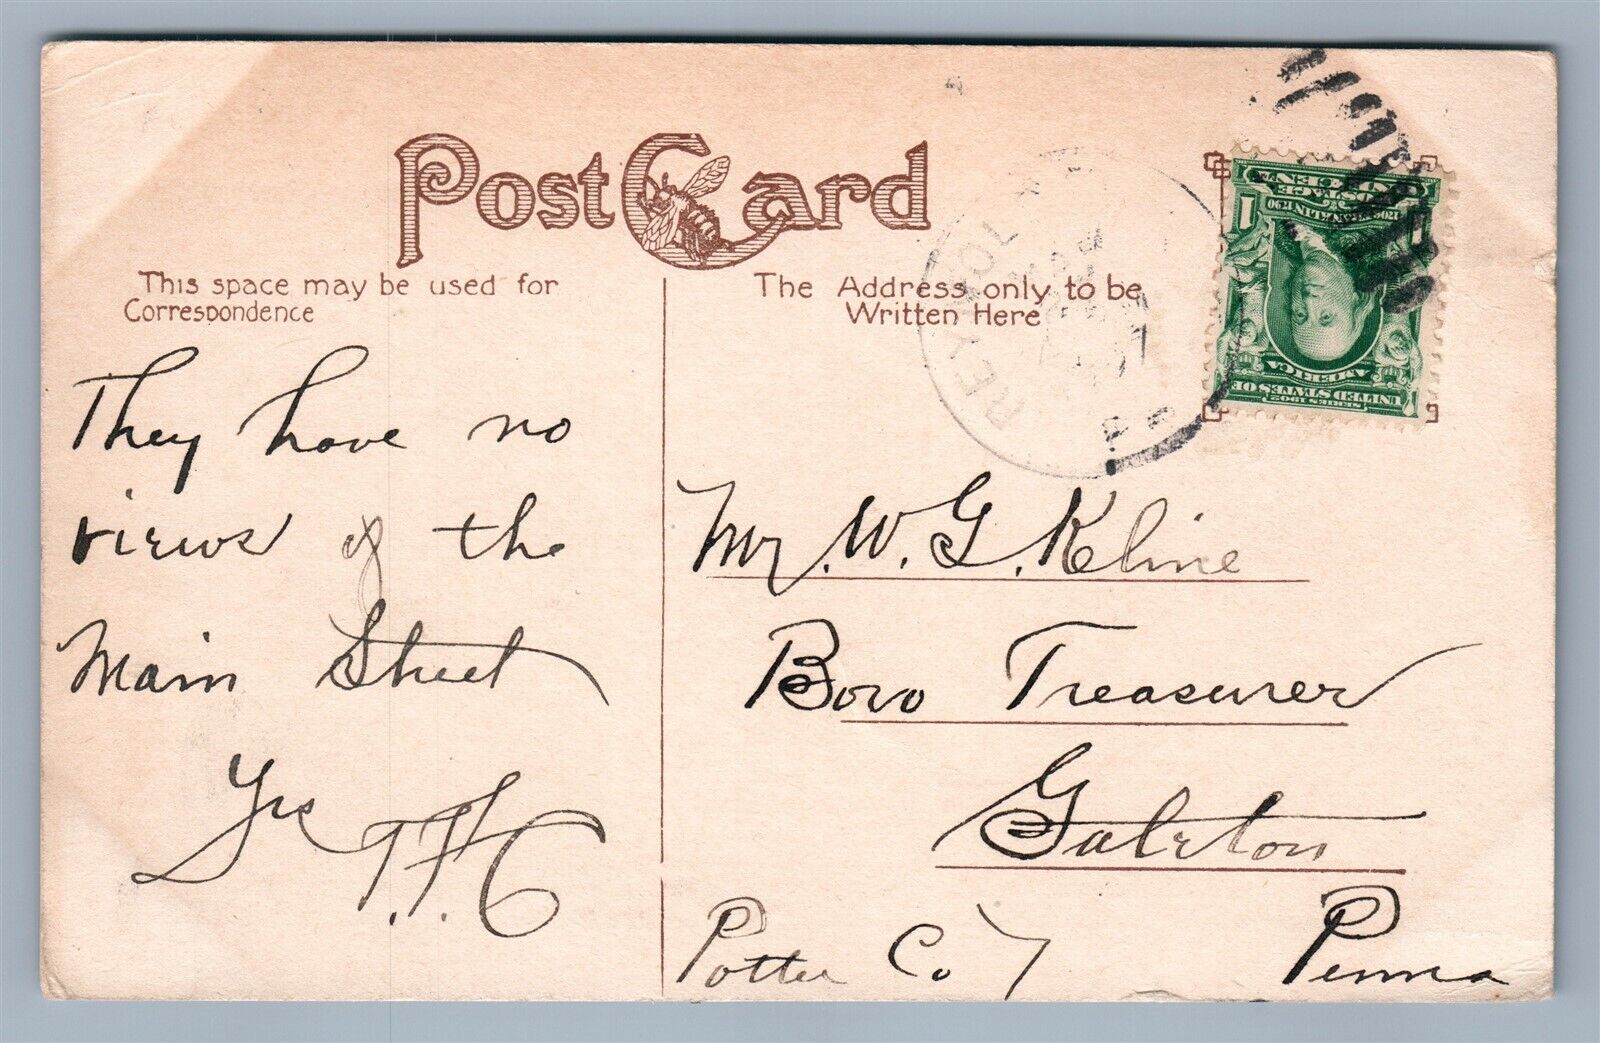 Post Card
This space may be used for
Correspondence
The Address only to be
Written Here
REYNOL
SERIES 1902
UNITED STATES OF
AMERICA
1
They have no
views of the
Main Street
Yrs
T.F.C
Mr. W. G. Kline
Boro Treasurer
Galeton
Potter Co
Penna